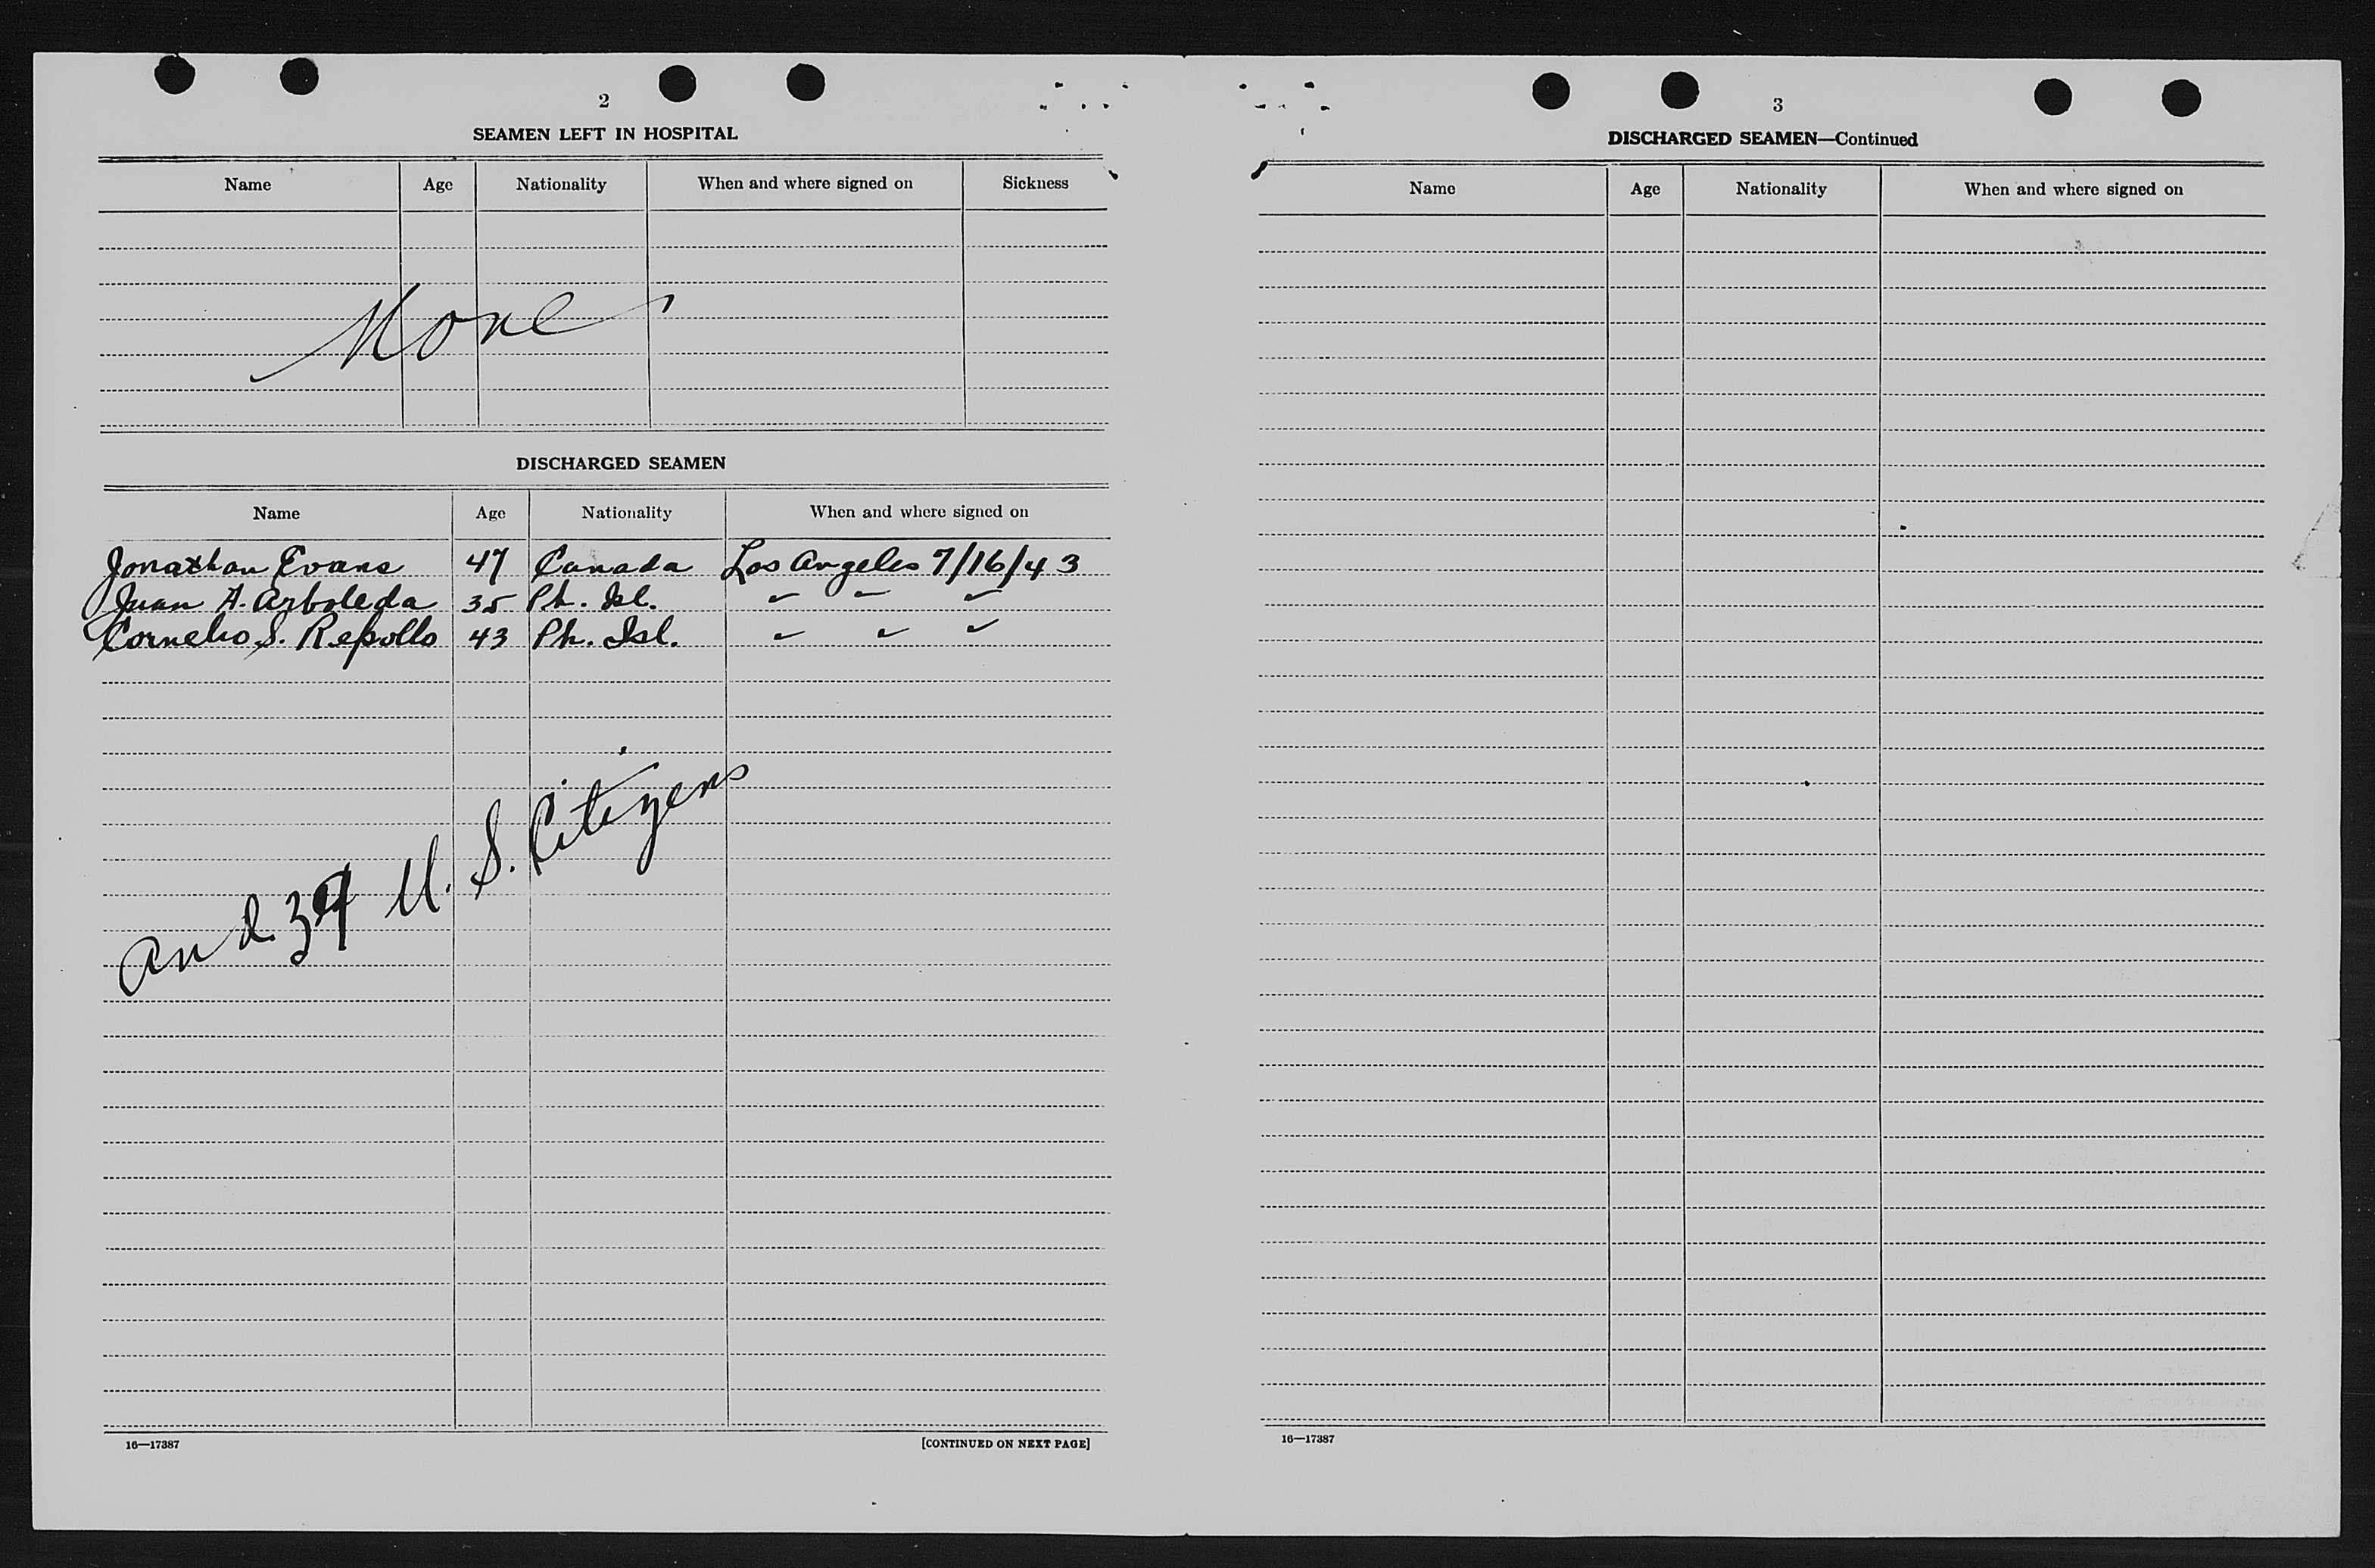 2
SEAMEN LEFT IN HOSPITAL
Name Age Nationality When and where signed on Sickness
None
DISCHARGED SEAMEN
Name Age Nationality When and where signed on
Jonathan Evans 47 Canada Los Angeles 7/16/43
Juan A. Arboleda 35 Ph. Isl. " " "
Cornelio S. Repollo 43 Ph. Isl. " " "
and U. S. Citizens
16—17387 [CONTINUED ON NEXT PAGE]
3
DISCHARGED SEAMEN—Continued
Name Age Nationality When and where signed on
16—17387